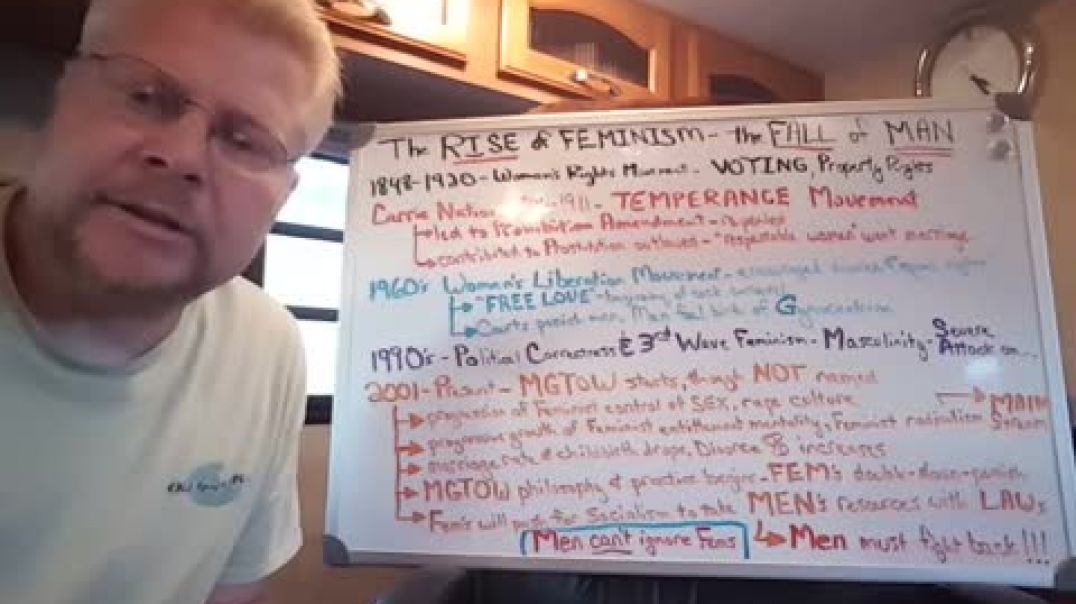 The RISE of FEMINISM - the FALL of MAN
1848-1920 - Woman's Rights Movement - VOTING, Property Rights
Carrie Nation -1911 - TEMPERANCE Movement
led to Prohibition Amendment -
contributed to Prostitution outlawed - "respectable women" want marriage
1960's Women's Liberation Movement - encouraged
"FREE LOVE" - beginning of
Courts punish men, Men feel birth of Gynocentrism
1990's - Political Correctness & 3rd Wave Feminism - Masculinity - Severe Attack on...
2001 - Present - MGTOW starts, though NOT named
progression of Feminist control of SEX, rape culture
progressive growth of Feminist entitlement mentality, Feminist radicalism
MAIN Stream
marriage rate & childbirth drops, Divorce % increases
MGTOW philosophy & practice begins - FEM's double-down - punish
Fem's will push for Socialism to take MEN's resources with LAWs
Men can't ignore Fems
Men must fight back!!!